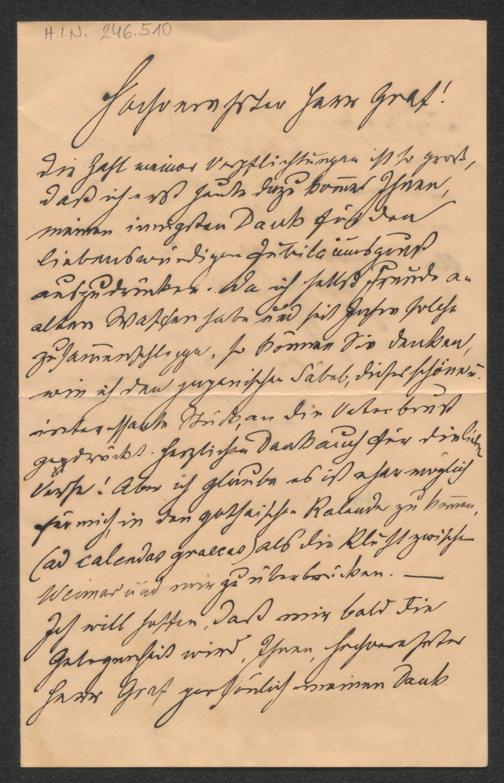 H.I.N. 246.510
Hochverehrter Herr Graf!
Die Zahl meiner Verpflichtungen ist so groß,
daß ich erst heute dazu komme Ihnen,
meinen innigsten Dank für den
liebenswürdigen Jubiläumsgruß
auszudrücken. Da ich selbst Freude an
alten Waffen habe und seit Jahren solche
zusammenschleppe, so können Sie denken,
wie ich den japanischen Säbel, dieses schöne u.
interessante Stück, an die Vaterbrust
gedrückt. Herzlichen Dank auch für die lieben
Verse! Aber ich glaube es ist eher möglich
für mich, in den gothaischen Kalender zu kommen,
(ad calendas graecas) als die Kluft zwischen
Weimar und mir zu überbrücken. —
Ich will hoffen, daß mir bald die
Gelegenheit wird, Ihnen, hochverehrter
Herr Graf persönlich meinen Dank